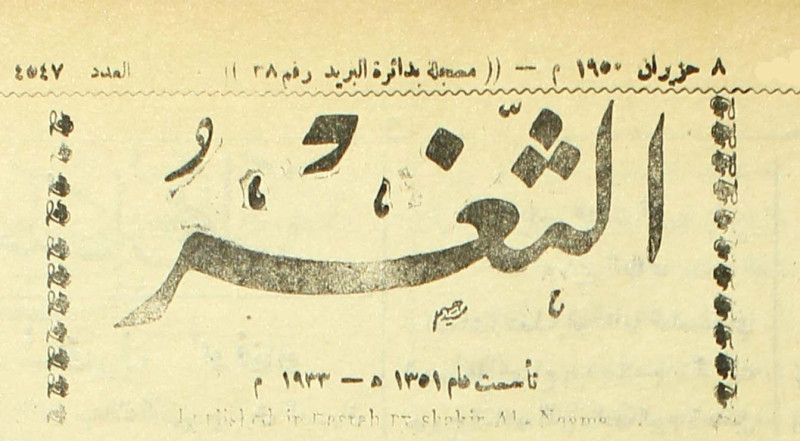 ٨ حزيران ١٩٥٠ م — (( مسجلة بدائرة البريد رقم ٢٨ )) العدد ٤٥٤٧
الثَّغْرُ
تأسست عام ١٣٥١ ه — ١٩٣٣ م